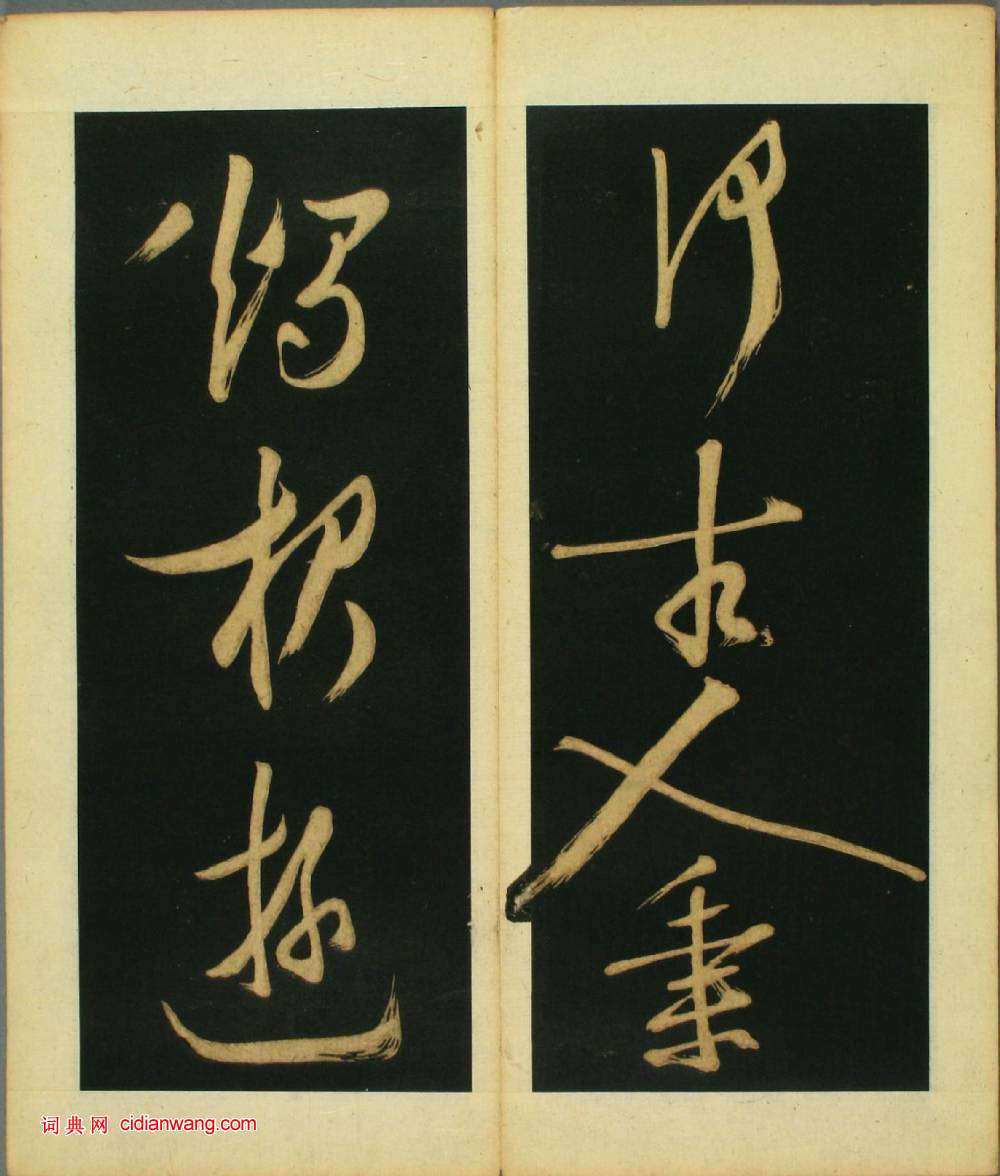 何古人秉
燭夜遊
词典网 cidianwang.com